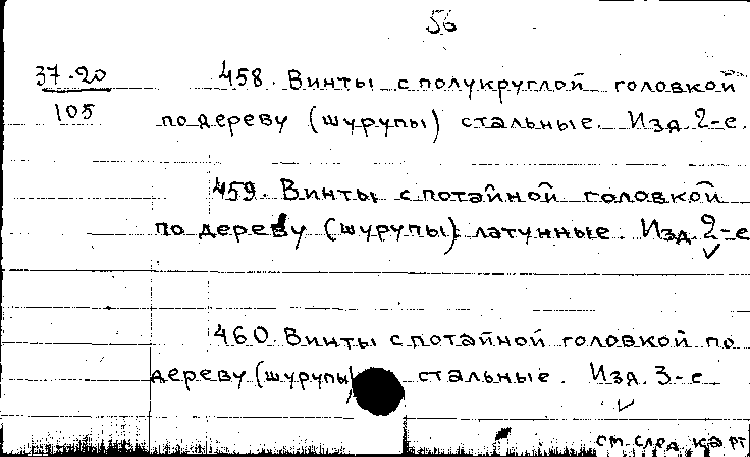 56
37-20 458. Винты с полукруглой головкой
105 по дереву (шурупы) стальные. Изд. 2-е.
459. Винты с потайной головкой
по дереву (шурупы) латунные. Изд. 2-е
460. Винты с потайной головкой по
дереву (шурупы) стальные. Изд. 3-е
см. след. карт